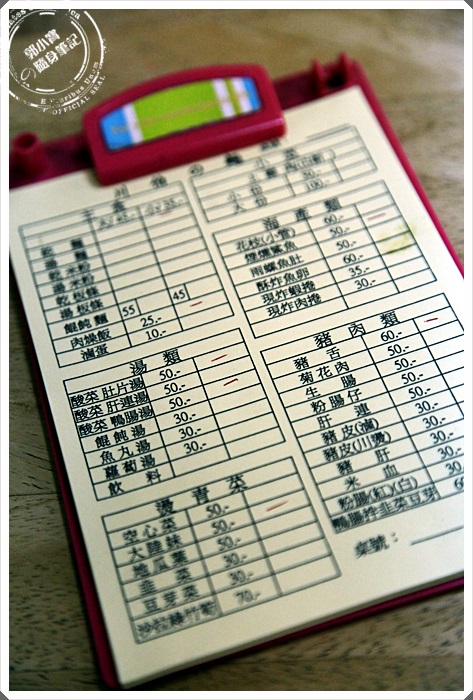 郭小寶
の隨身筆記
OFFICIAL SEAL
主食
大/45.- 小/35.-
乾麵
湯麵
乾米粉
湯米粉
乾板條
湯板條
餛飩麵 55 45
肉燥飯 25.-
滷蛋 10.-
湯類
酸菜肚片湯 50.-
酸菜肝連湯 50.-
酸菜鴨腸湯 50.-
餛飩湯 30.-
魚丸湯 30.-
蘿蔔湯 30.-
飲料
燙青菜
空心菜 50.-
大陸妹 50.-
地瓜葉 50.-
韭菜 30.-
豆芽菜 30.-
70.-
小份 50.-
大份 100.-
海產類
花枝(小管) 60.-
煙燻鯊魚 50.-
雨螺魚肚 50.-
酥炸魚卵 60.-
現炸蝦捲 35.-
現炸肉捲 30.-
豬肉類
豬舌 60.-
菊花肉 50.-
生腸 50.-
粉腸仔 50.-
肝連 50.-
豬皮(滷) 30.-
豬皮(川燙) 30.-
豬肝 30.-
米血 30.-
粉腸(紅)(白) 30.-
鴨腸拌韭菜豆芽 60
桌號：